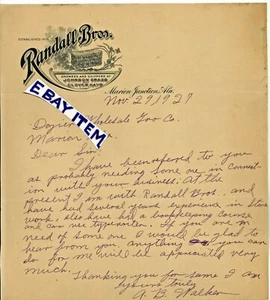 ESTABLISHED
Randall Bros.
GROWERS AND SHIPPERS OF
JOHNSON GRASS
AND
CLOVER HAYS
Marion Junction, Ala.
Nov 29 1927
EBAY ITEM
Dozier Wholesale Gro Co.
Marion
Dear Sir
I have been refered to you
as probably needing some one in connect
ion with your business. At the
present I am with Randall Bros. and
have had several years experience in store
work, also have had a bookkeeping course
and can use typewriter. If you are in
need of some one I would be glad to
hear from you. anything you can
do for me will be appreciated very
much.
Thanking you for same I am
yours truly
A. B. Walker